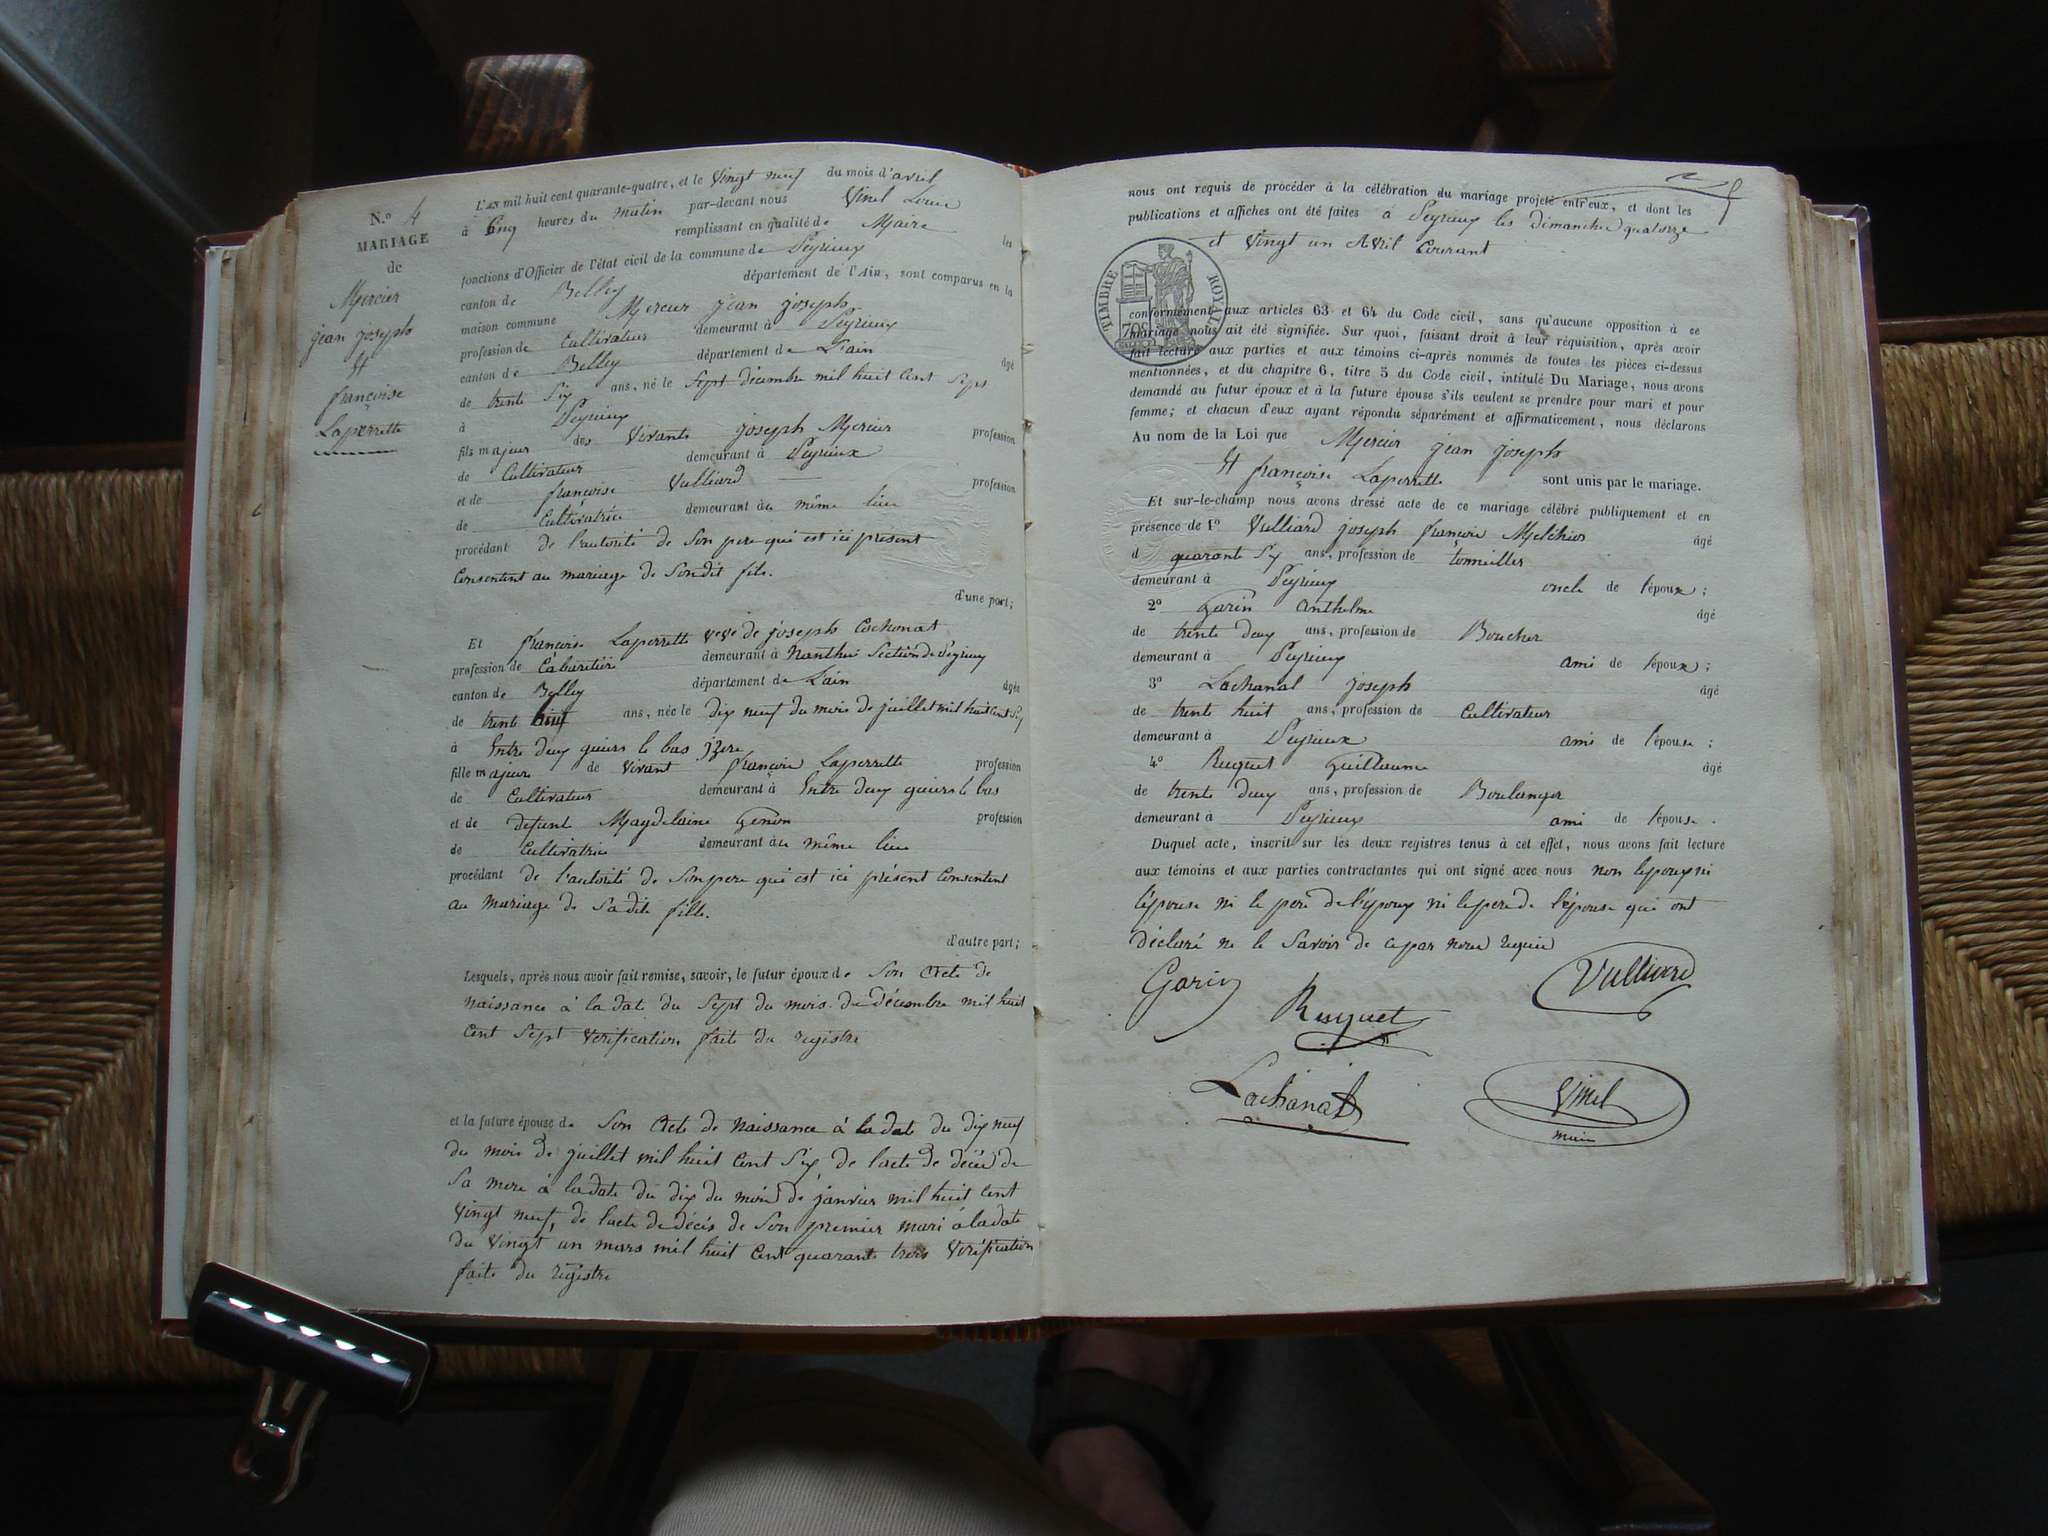 N.º 4
MARIAGE
de
Mercier
jean joseph
Et
françoise
Laperrette
L'AN mil huit cent quarante-quatre, et le Vingt neuf du mois d'avril
à Cinq heures du matin par-devant nous Vinel
remplissant en qualité de Maire les
fonctions d'Officier de l'état civil de la commune de Peyrieux
canton de Belley département de l'AIN, sont comparus en la
maison commune Mercier jean joseph
profession de Cultivateur demeurant à Peyrieux
canton de Belley département de L'ain âgé
de trente Six ans, né le Sept décembre mil huit Cent Sept
à Peyrieux
fils majeur des Vivants joseph Mercier profession
de Cultivateur demeurant à Peyrieux
et de françoise Vulliard profession
de Cultivatrice demeurant au même lieu
procédant de l'autorité de Son pere qui est ici présent
Consentent au mariage de Sondit fils.
d'une part;
Et françoise Laperrette veve de joseph Cochonat
profession de Cabaretier demeurant à Nanthui Section de Peyrieux
canton de Belley département de L'ain âgée
de trente ans, née le dix neuf du mois de juillet mil huit Cent Six
à Entre deux guiers le bas jzere
fille majeure de Vivant françois Laperrette profession
de Cultivateur demeurant à Entre deux guiers le bas
et de defunt Magdelaine Genon profession
de Cultivatrice demeurant au même lieu
procédant de l'autorité de Son pere qui est ici présent Consentent
au mariage de Sadite fille.
d'autre part;
Lesquels, après nous avoir fait remise, savoir, le futur époux de Son Acte de
Naissance à la date du Sept du mois de décembre mil huit
Cent Sept Vérification faite du registre
et la future épouse de Son Acte de Naissance à la date du dix neuf
du mois de juillet mil huit Cent Six, de l'acte de décès de
Sa mere à la date du dix du mois de janvier mil huit Cent
Vingt neuf, de l'acte de décis de Son premier mari à la date
du Vingt un mars mil huit Cent quarante trois Vérification
faite du registre
nous ont requis de procéder à la célébration du mariage projeté entr'eux, et dont les
publications et affiches ont été faites à Peyrieux les dimanches quatorze
et Vingt un Avril Courant
TIMBRE ROYAL
70c
conformément aux articles 63 et 64 du Code civil, sans qu'aucune opposition à ce
mariage nous ait été signifiée. Sur quoi, faisant droit à leur réquisition, après avoir
fait lecture aux parties et aux témoins ci-après nommés de toutes les pièces ci-dessus
mentionnées, et du chapitre 6, titre 5 du Code civil, intitulé Du Mariage, nous avons
demandé au futur époux et à la future épouse s'ils veulent se prendre pour mari et pour
femme; et chacun d'eux ayant répondu séparément et affirmativement, nous déclarons
Au nom de la Loi que Mercier jean joseph
Et françoise Laperrette sont unis par le mariage.
Et sur-le-champ nous avons dressé acte de ce mariage célébré publiquement et en
présence de 1º Vulliard joseph françois Melchior âgé
d quarante Six ans, profession de tonnellier
demeurant à Peyrieux oncle de l'époux;
2º Garin Anthelme âgé
de trente deux ans, profession de Boucher
demeurant à Peyrieux ami de l'époux;
3º Lachanal joseph âgé
de trente huit ans, profession de Cultivateur
demeurant à Peyrieux ami de l'épouse;
4º Ruguet Guillaume âgé
de trente deux ans, profession de Boulanger
demeurant à Peyrieux ami de l'épouse.
Duquel acte, inscrit sur les deux registres tenus à cet effet, nous avons fait lecture
aux témoins et aux parties contractantes qui ont signé avec nous non lepoux ni
l'épouse ni le pere de l'époux ni le pere de l'épouse qui ont
déclaré ne le Savoir de ce par nous requis
Garin
Ruguet
Vulliard
Lachanal
Vinel
maire